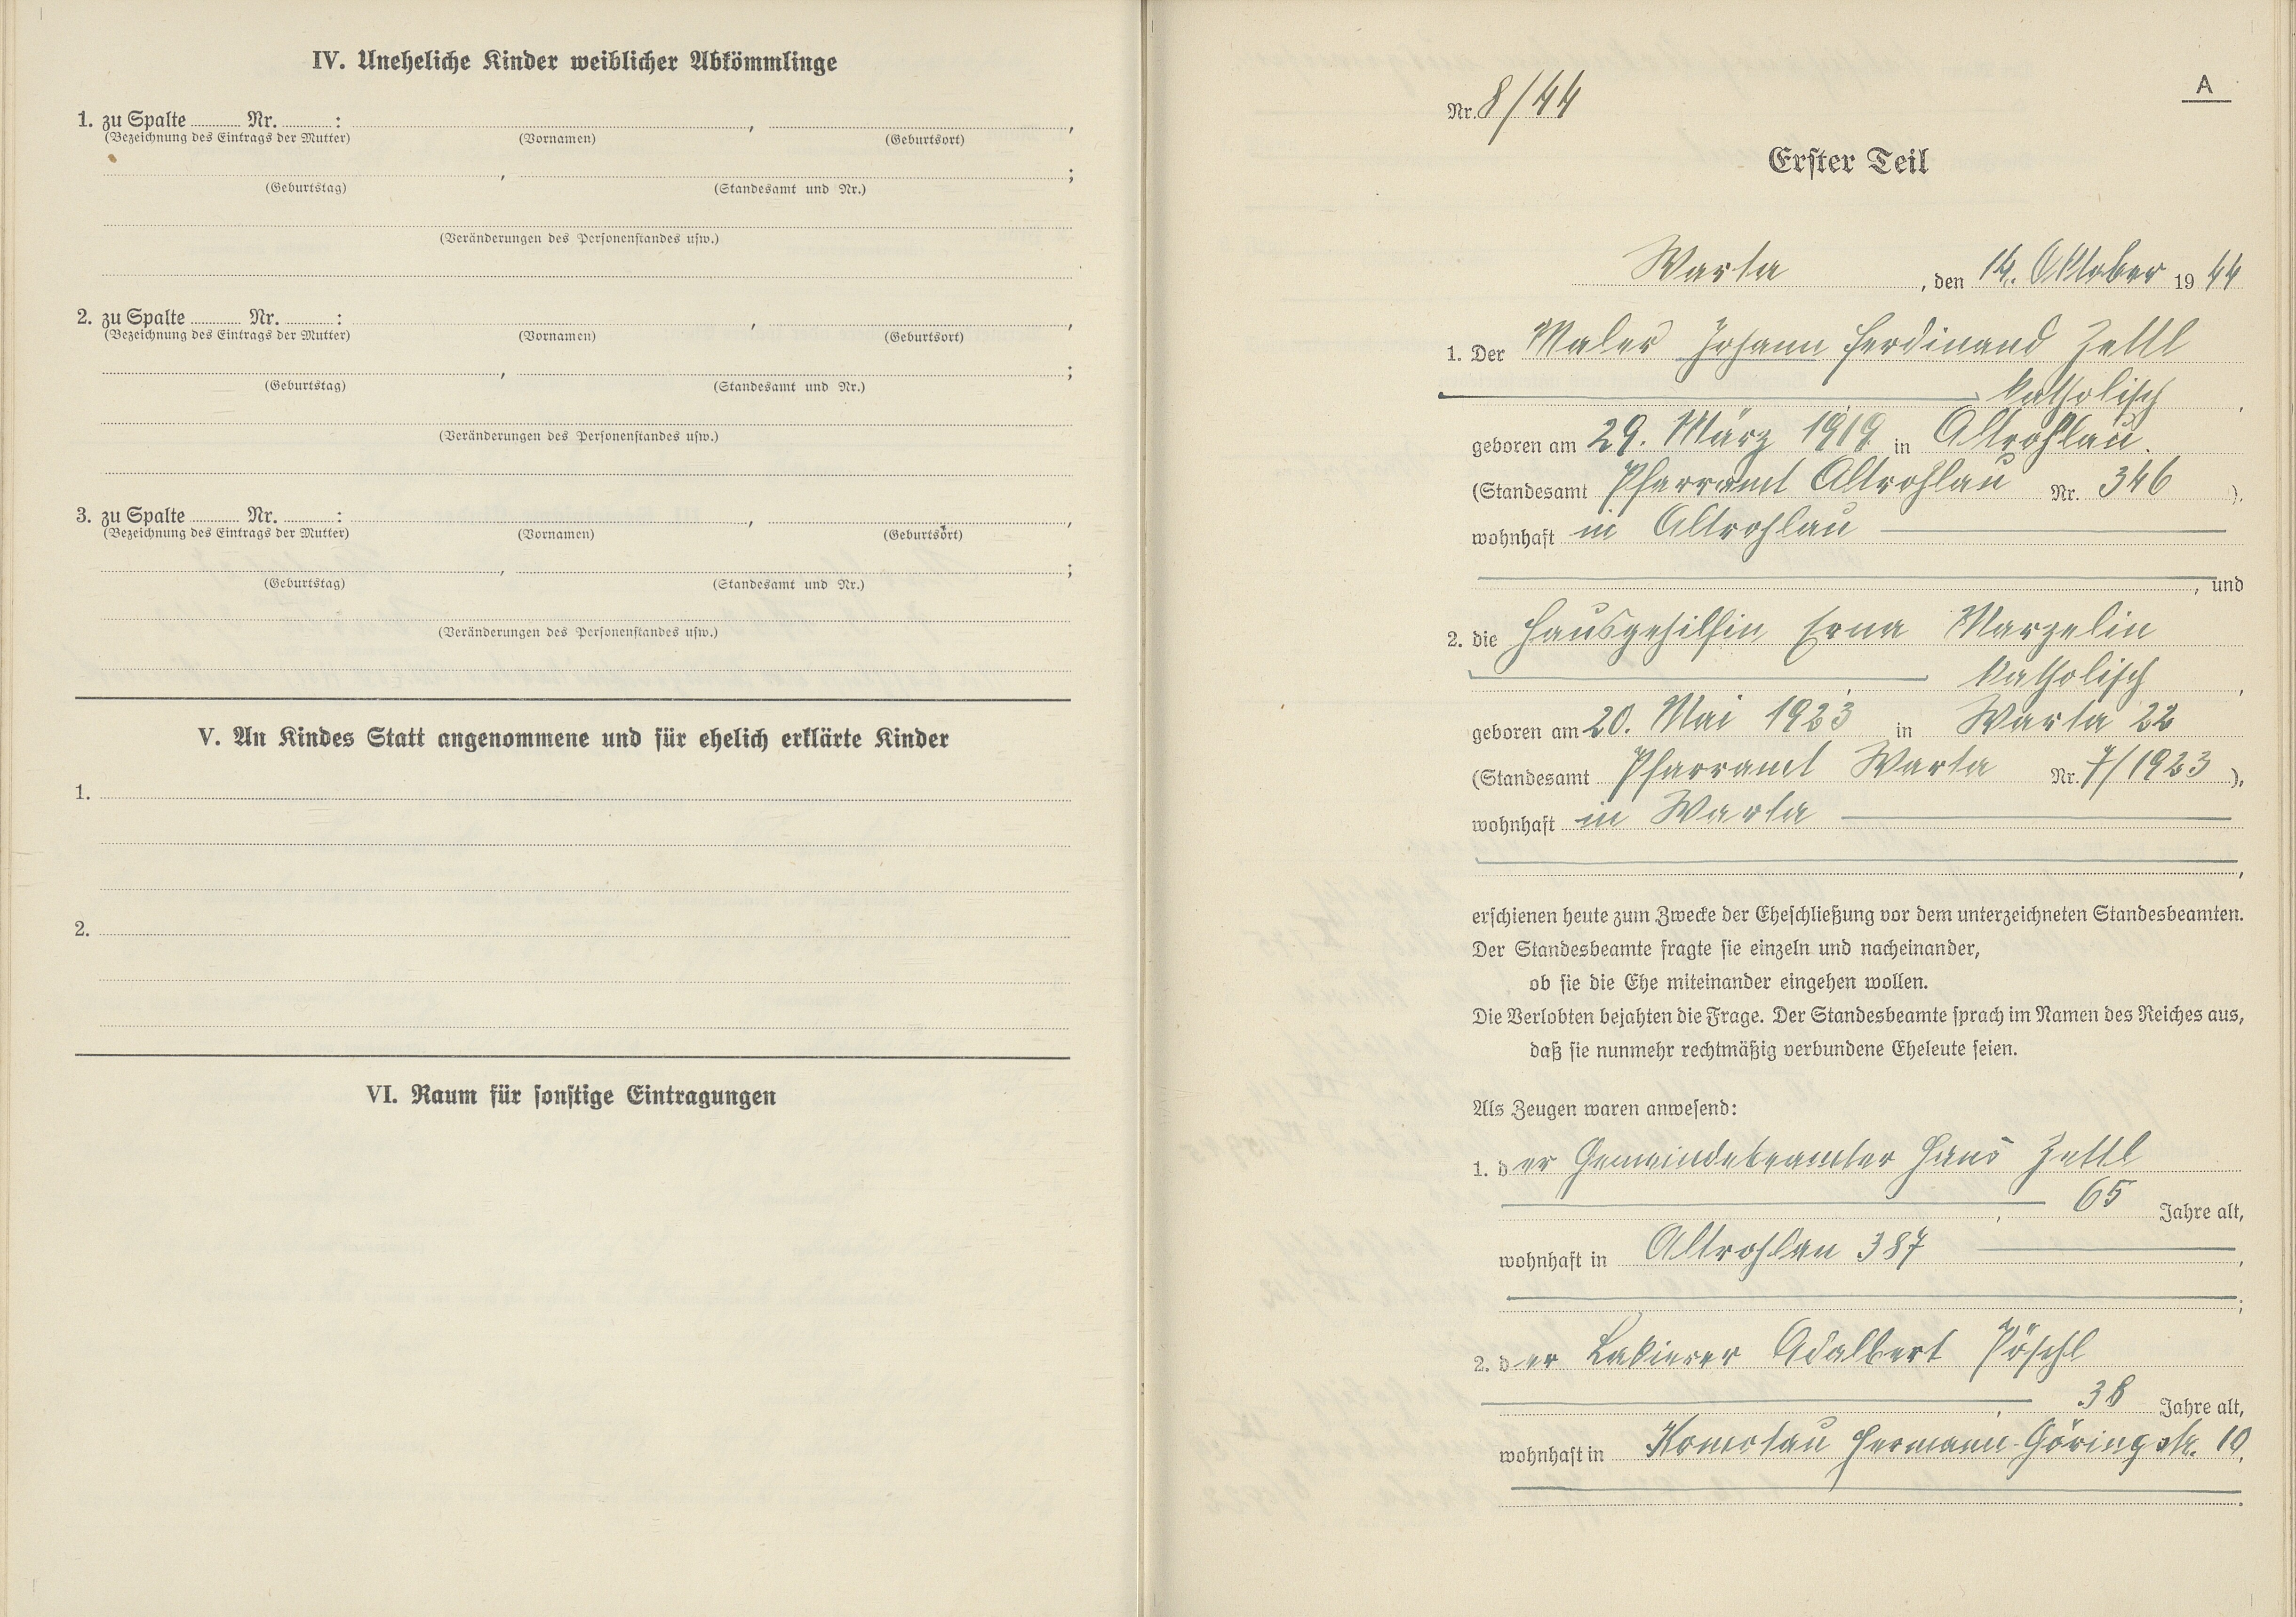 IV. Uneheliche Kinder weiblicher Abkömmlinge
1. zu Spalte Nr. : , ,
(Bezeichnung des Eintrags der Mutter) (Vornamen) (Geburtsort)
, ;
(Geburtstag) (Standesamt und Nr.)
(Veränderungen des Personenstandes usw.)
2. zu Spalte Nr. : , ,
(Bezeichnung des Eintrags der Mutter) (Vornamen) (Geburtsort)
, ;
(Geburtstag) (Standesamt und Nr.)
(Veränderungen des Personenstandes usw.)
3. zu Spalte Nr. : , ,
(Bezeichnung des Eintrags der Mutter) (Vornamen) (Geburtsort)
, ;
(Geburtstag) (Standesamt und Nr.)
(Veränderungen des Personenstandes usw.)
V. An Kindes Statt angenommene und für ehelich erklärte Kinder
1.
2.
VI. Raum für sonstige Eintragungen
A
Nr. 8/44
Erster Teil
Warta , den 14. Oktober 1944
1. Der Maler Johann Ferdinand Zettl
katholisch ,
geboren am 29. März 1919 in Altrohlau.
(Standesamt Pfarramt Altrohlau Nr. 346 ),
wohnhaft in Altrohlau
, und
2. die Hausgehilfin Erna Marzelin
katholisch ,
geboren am 20. Mai 1923 in Warta 22
(Standesamt Pfarramt Warta Nr. 7/1923 ),
wohnhaft in Warta
,
erschienen heute zum Zwecke der Eheschließung vor dem unterzeichneten Standesbeamten.
Der Standesbeamte fragte sie einzeln und nacheinander,
ob sie die Ehe miteinander eingehen wollen.
Die Verlobten bejahten die Frage. Der Standesbeamte sprach im Namen des Reiches aus,
daß sie nunmehr rechtmäßig verbundene Eheleute seien.
Als Zeugen waren anwesend:
1. der Gemeindebeamter Hans Zettl
, 65 Jahre alt,
wohnhaft in Altrohlau 387 ,
;
2. der Lakierer Adalbert Pöschl
, 38 Jahre alt,
wohnhaft in Komotau Hermann-Göringstr. 10,
.